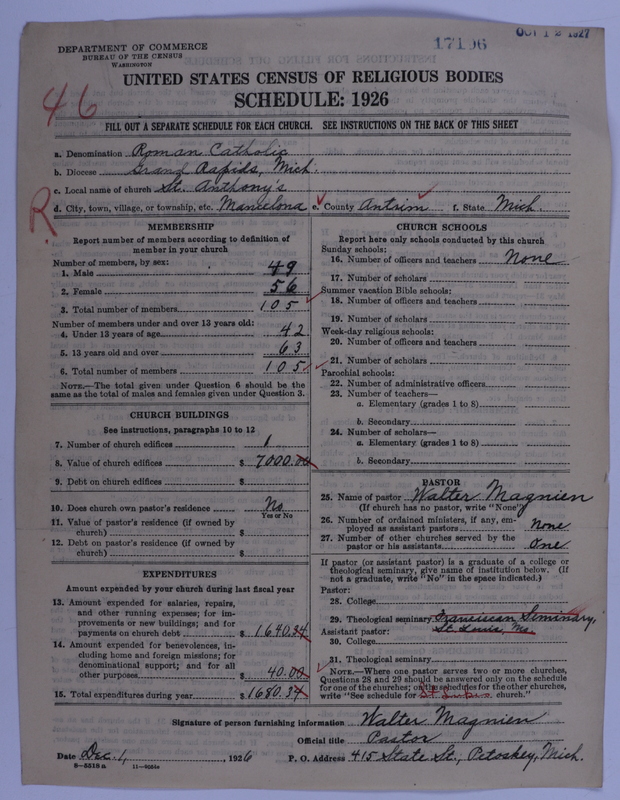 OCT 12 1927
17196
DEPARTMENT OF COMMERCE
BUREAU OF THE CENSUS
WASHINGTON
UNITED STATES CENSUS OF RELIGIOUS BODIES
SCHEDULE: 1926
46
FILL OUT A SEPARATE SCHEDULE FOR EACH CHURCH. SEE INSTRUCTIONS ON THE BACK OF THIS SHEET
a. Denomination Roman Catholic
b. Diocese Grand Rapids, Mich.
c. Local name of church St. Anthony's
d. City, town, village, or township, etc. Mancelona e. County Antrim f. State Mich.
R.
MEMBERSHIP
Report number of members according to definition of
member in your church
Number of members, by sex:
1. Male 49
2. Female 56
3. Total number of members 105
Number of members under and over 13 years old:
4. Under 13 years of age 42
5. 13 years old and over 63
6. Total number of members 105
NOTE.—The total given under Question 6 should be the
same as the total of males and females given under Question 3.
CHURCH BUILDINGS
See instructions, paragraphs 10 to 12
7. Number of church edifices 1
8. Value of church edifices $ 7000.00
9. Debt on church edifices $
10. Does church own pastor's residence No
Yes or No
11. Value of pastor's residence (if owned by
church) $
12. Debt on pastor's residence (if owned by
church) $
EXPENDITURES
Amount expended by your church during last fiscal year
13. Amount expended for salaries, repairs,
and other running expenses; for im-
provements or new buildings; and for
payments on church debt $ 1640.34
14. Amount expended for benevolences, in-
cluding home and foreign missions; for
denominational support; and for all
other purposes $ 40.00
15. Total expenditures during year $ 1680.34
CHURCH SCHOOLS
Report here only schools conducted by this church
Sunday schools:
16. Number of officers and teachers None
17. Number of scholars
Summer vacation Bible schools:
18. Number of officers and teachers
19. Number of scholars
Week-day religious schools:
20. Number of officers and teachers
21. Number of scholars
Parochial schools:
22. Number of administrative officers
23. Number of teachers—
a. Elementary (grades 1 to 8)
b. Secondary
24. Number of scholars—
a. Elementary (grades 1 to 8)
b. Secondary
PASTOR
25. Name of pastor Walter Magnien
(If church has no pastor, write "None")
26. Number of ordained ministers, if any, em-
ployed as assistant pastors None
27. Number of other churches served by the
pastor or his assistants One
If pastor (or assistant pastor) is a graduate of a college or
theological seminary, give name of institution below. (If
not a graduate, write "No" in the space indicated.)
Pastor:
28. College
29. Theological seminary Franciscan Seminary,
Assistant pastor: St. Louis, Mo.
30. College
31. Theological seminary
NOTE.—Where one pastor serves two or more churches,
Questions 28 and 29 should be answered only on the schedule
for one of the churches; on the schedules for the other churches,
write "See schedule for St. church."
Signature of person furnishing information Walter Magnien
Official title Pastor
Date Dec. 1, 1926 P. O. Address 415 State St., Petoskey, Mich.
8—5518 a